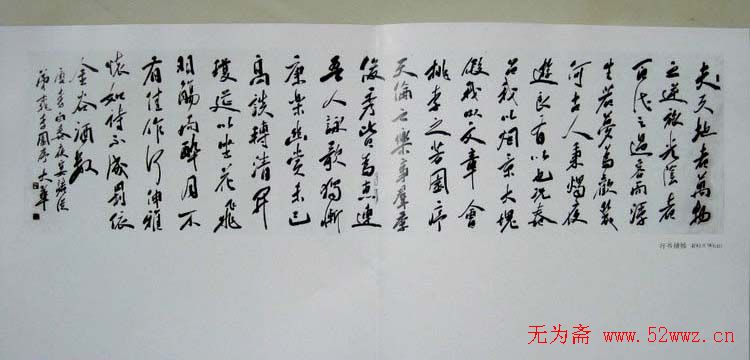 夫天地者萬物
之逆旅光陰者
百代之過客而浮
生若夢為歡幾
何古人秉燭夜
遊良有以也況春
召我以煙景大塊
假我以文章會
桃李之芳園序
天倫之樂事羣季
俊秀皆為惠連
吾人詠歌獨慚
康樂幽賞未已
高談轉清開
瓊筵以坐花飛
羽觴而醉月不
有佳作何伸雅
懷如詩不成罰依
金谷酒數
唐李白春夜宴諸從
弟桃李園序
行书横幅
无为斋 www.52wwz.cn